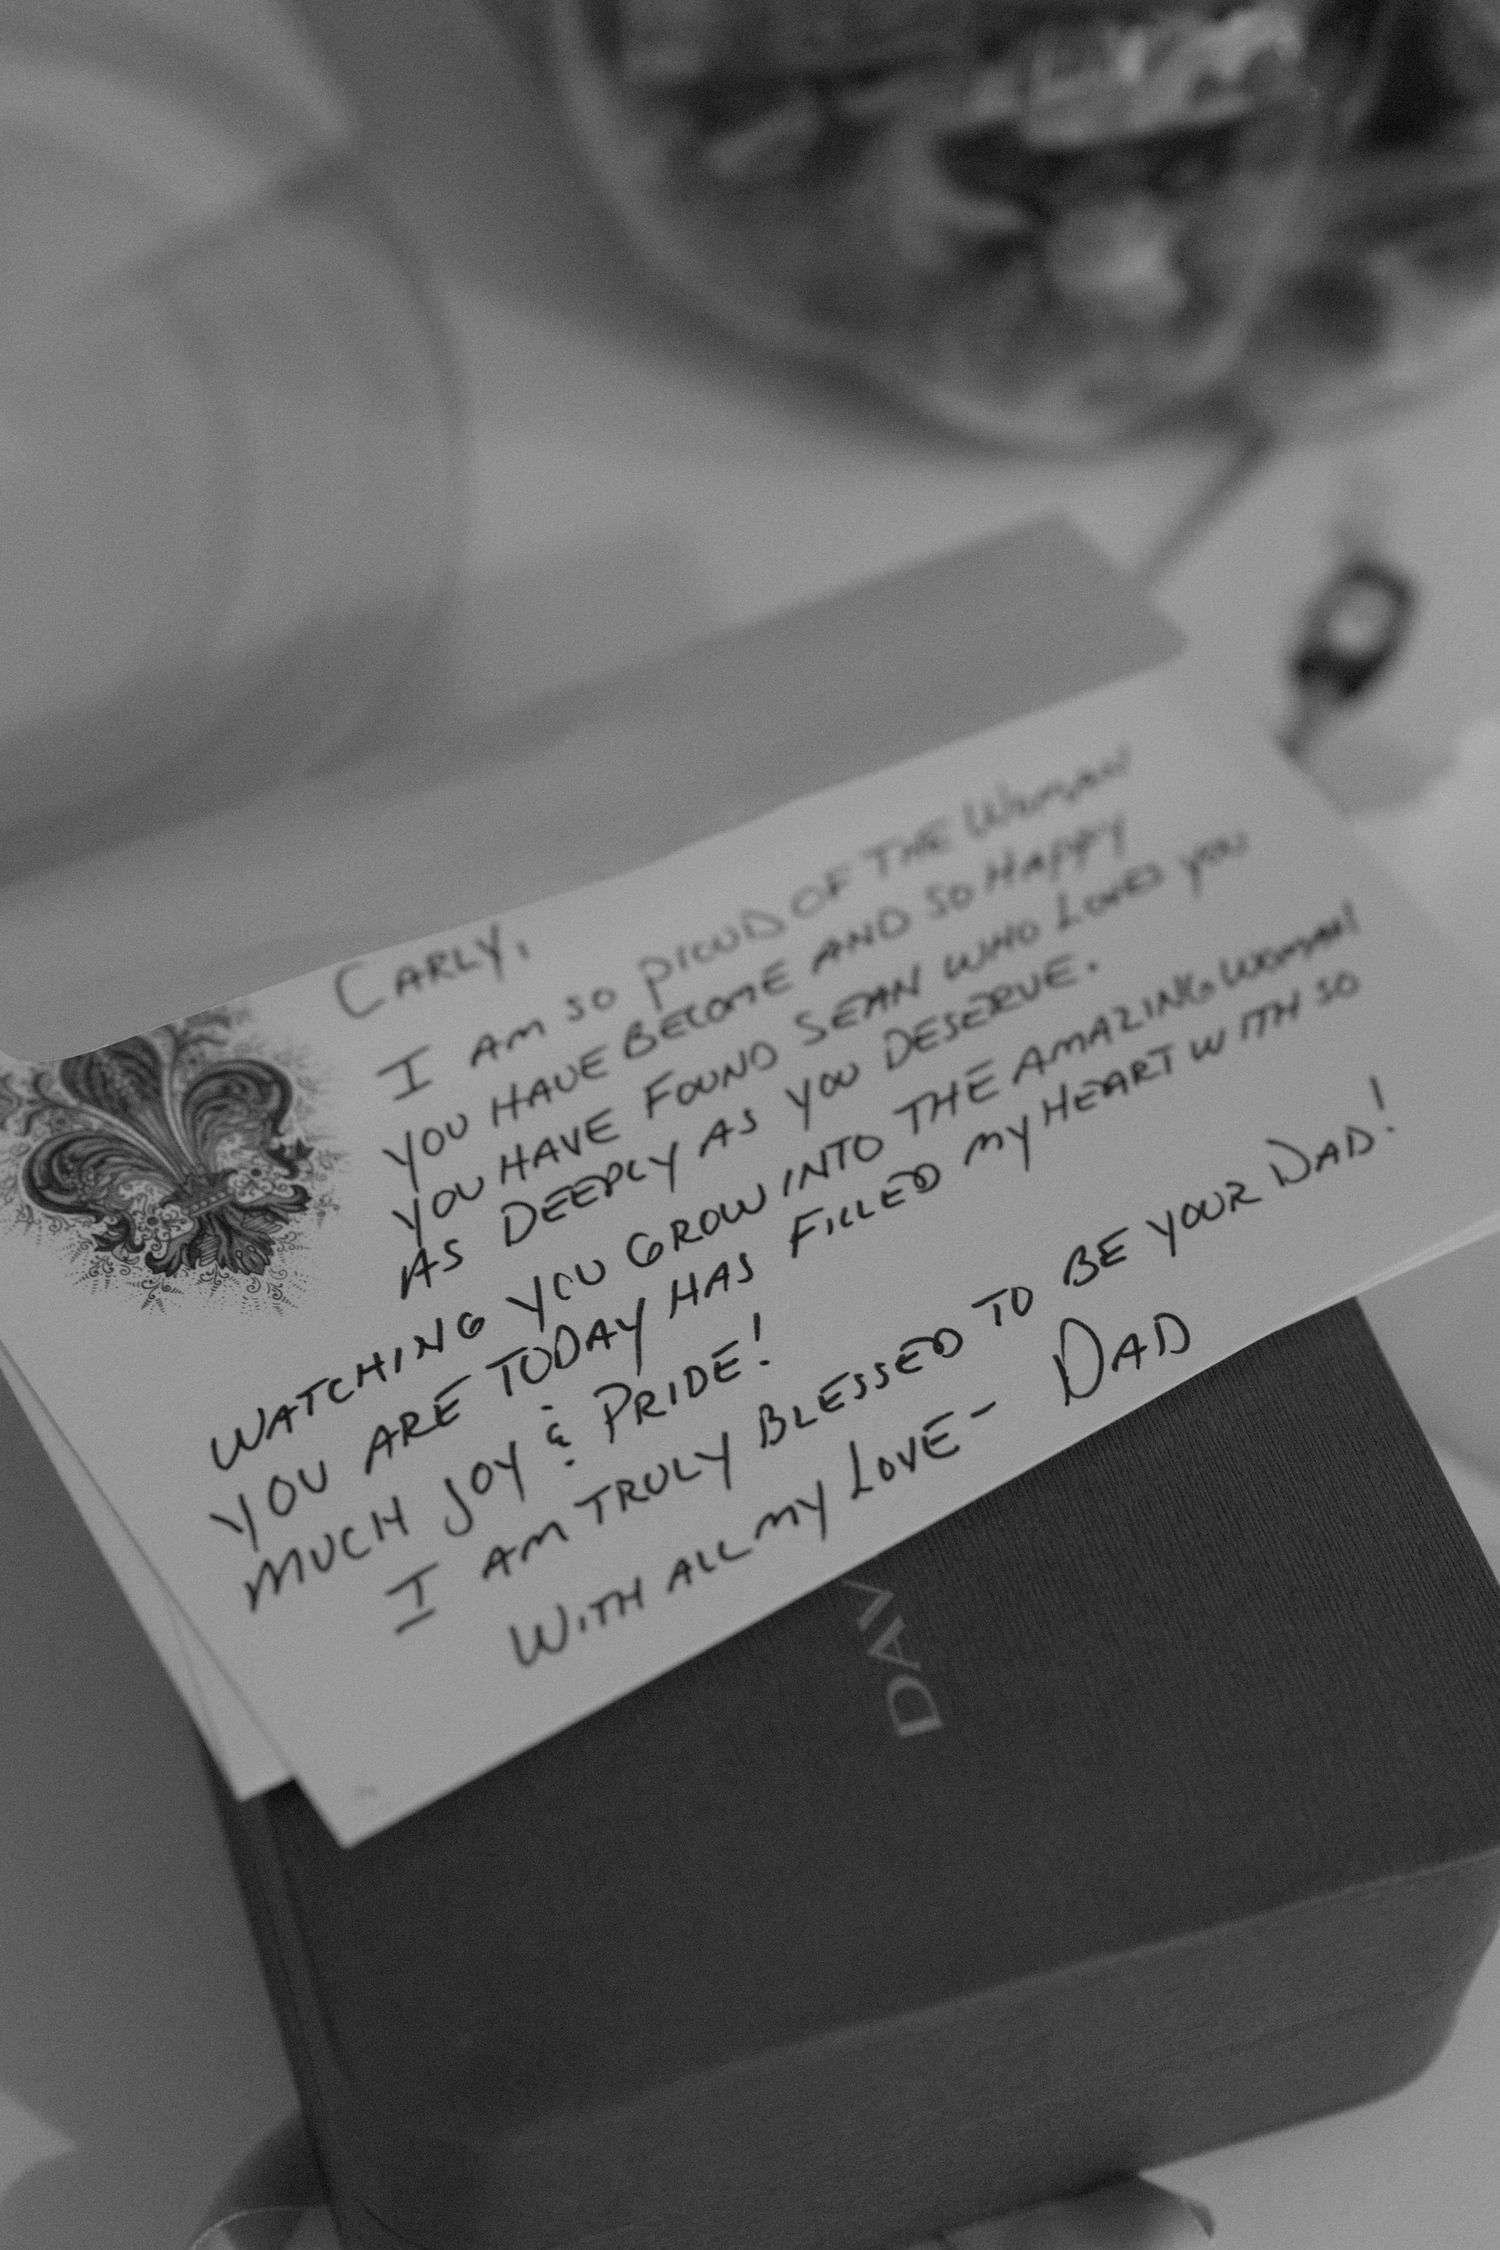 CARLY,
I AM SO PROUD OF THE WOMAN
YOU HAVE BECOME AND SO HAPPY
YOU HAVE FOUND SEAN WHO LOVES YOU
AS DEEPLY AS YOU DESERVE.
WATCHING YOU GROW INTO THE AMAZING WOMAN
YOU ARE TODAY HAS FILLED MY HEART WITH SO
MUCH JOY & PRIDE!
I AM TRULY BLESSED TO BE YOUR DAD!
WITH ALL MY LOVE - DAD
DAV